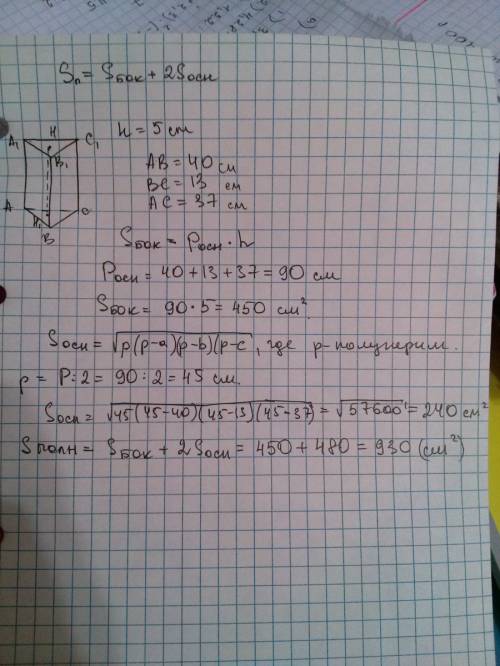 Sп = Sбок + 2Sосн
A₁ H C₁
B₁
A C
H₁
B
h = 5 см
AB = 40 см
BC = 13 см
AC = 37 см
Sбок = Pосн · h
Pосн = 40 + 13 + 37 = 90 см
Sбок = 90 · 5 = 450 см².
Sосн = √p(p-a)(p-b)(p-c), где p-полуперим.
p = P:2 = 90:2 = 45 см.
Sосн = √45(45-40)(45-13)(45-37) = √57600 = 240 см²
Sполн = Sбок + 2Sосн = 450 + 480 = 930 (см²)